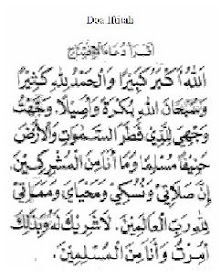 Doa Iftitah
اقرأ دعاء الافتتاح
اَللّٰهُ اَكْبَرُ كَبِيْرًا وَالْحَمْدُ لِلّٰهِ كَثِيْرًا
وَسُبْحَانَ اللّٰهِ بُكْرَةً وَاَصِيْلًا. وَجَّهْتُ
وَجْهِيَ لِلَّذِيْ فَطَرَ السَّمٰوَاتِ وَالْاَرْضَ
حَنِيْفًا مُسْلِمًا وَمَا اَنَا مِنَ الْمُشْرِكِيْنَ.
اِنَّ صَلَاتِيْ وَنُسُكِيْ وَمَحْيَايَ وَمَمَاتِيْ
لِلّٰهِ رَبِّ الْعَالَمِيْنَ. لَاشَرِيْكَ لَهُ وَبِذٰلِكَ
اُمِرْتُ وَاَنَا مِنَ الْمُسْلِمِيْنَ.